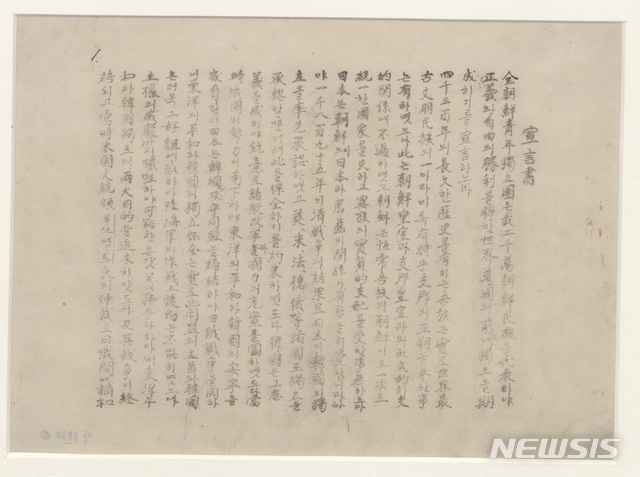 宣言書
全朝鮮靑年獨立團은我二千萬朝鮮民族을代表하야
正義와自由의勝利를得한世界萬國의前에獨立을期
成하기를宣言하노라
四千三百年의長久한歷史를有하는吾族은實로世界最
古文明民族의一이라비록有時乎支那의正朔을奉한事
는有하엿으나此는朝鮮皇室과支那皇室과의形式的外交
的關係에不過하엿고朝鮮은恒常吾族의朝鮮이오一次도
統一한國家를失하고異族의實質的支配를受한事無하도
日本은朝鮮이日本과脣齒의關係가有함을自覺함이라하
야一千八百九十五年日淸戰爭의結果로日本이韓國의獨
立을率先承認하엿고英、米、法、德、俄等諸國도獨立을
承認할뿐더러此를保全하기를約束하엿도다韓國은그恩
義를感하야銳意로諸般改革과國力의充實을圖하엿도다當
時俄國의勢力이南下하야東洋의平和와韓國의安寧을
威脅할새日本은韓國과攻守同盟을締結하야日俄戰爭을開하
니東洋의平和와韓國의獨立保全은實로此同盟의主旨와韓國
은더욱그好誼에感하야陸海軍의作戰上援助는不能하엿으나
主權의威嚴까지犧牲하야可能한온갖義務를다하야써東洋平
和와韓國獨立의兩大目的을追求하엿도다及其戰爭이終
結되고當時米國大統領루쓰벨트氏의仲裁로日俄間에講和
1.
NEWSIS